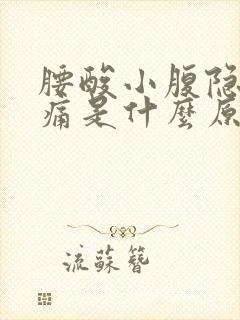 腰酸小腹隐
痛是什麼原
流蘇簪